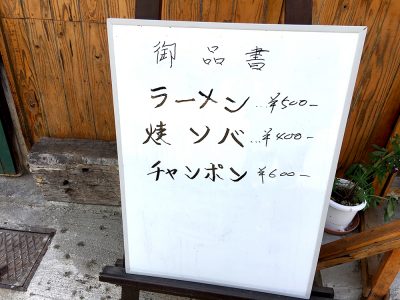 御品書
ラーメン...¥500-
焼ソバ...¥400-
チャンポン¥600-